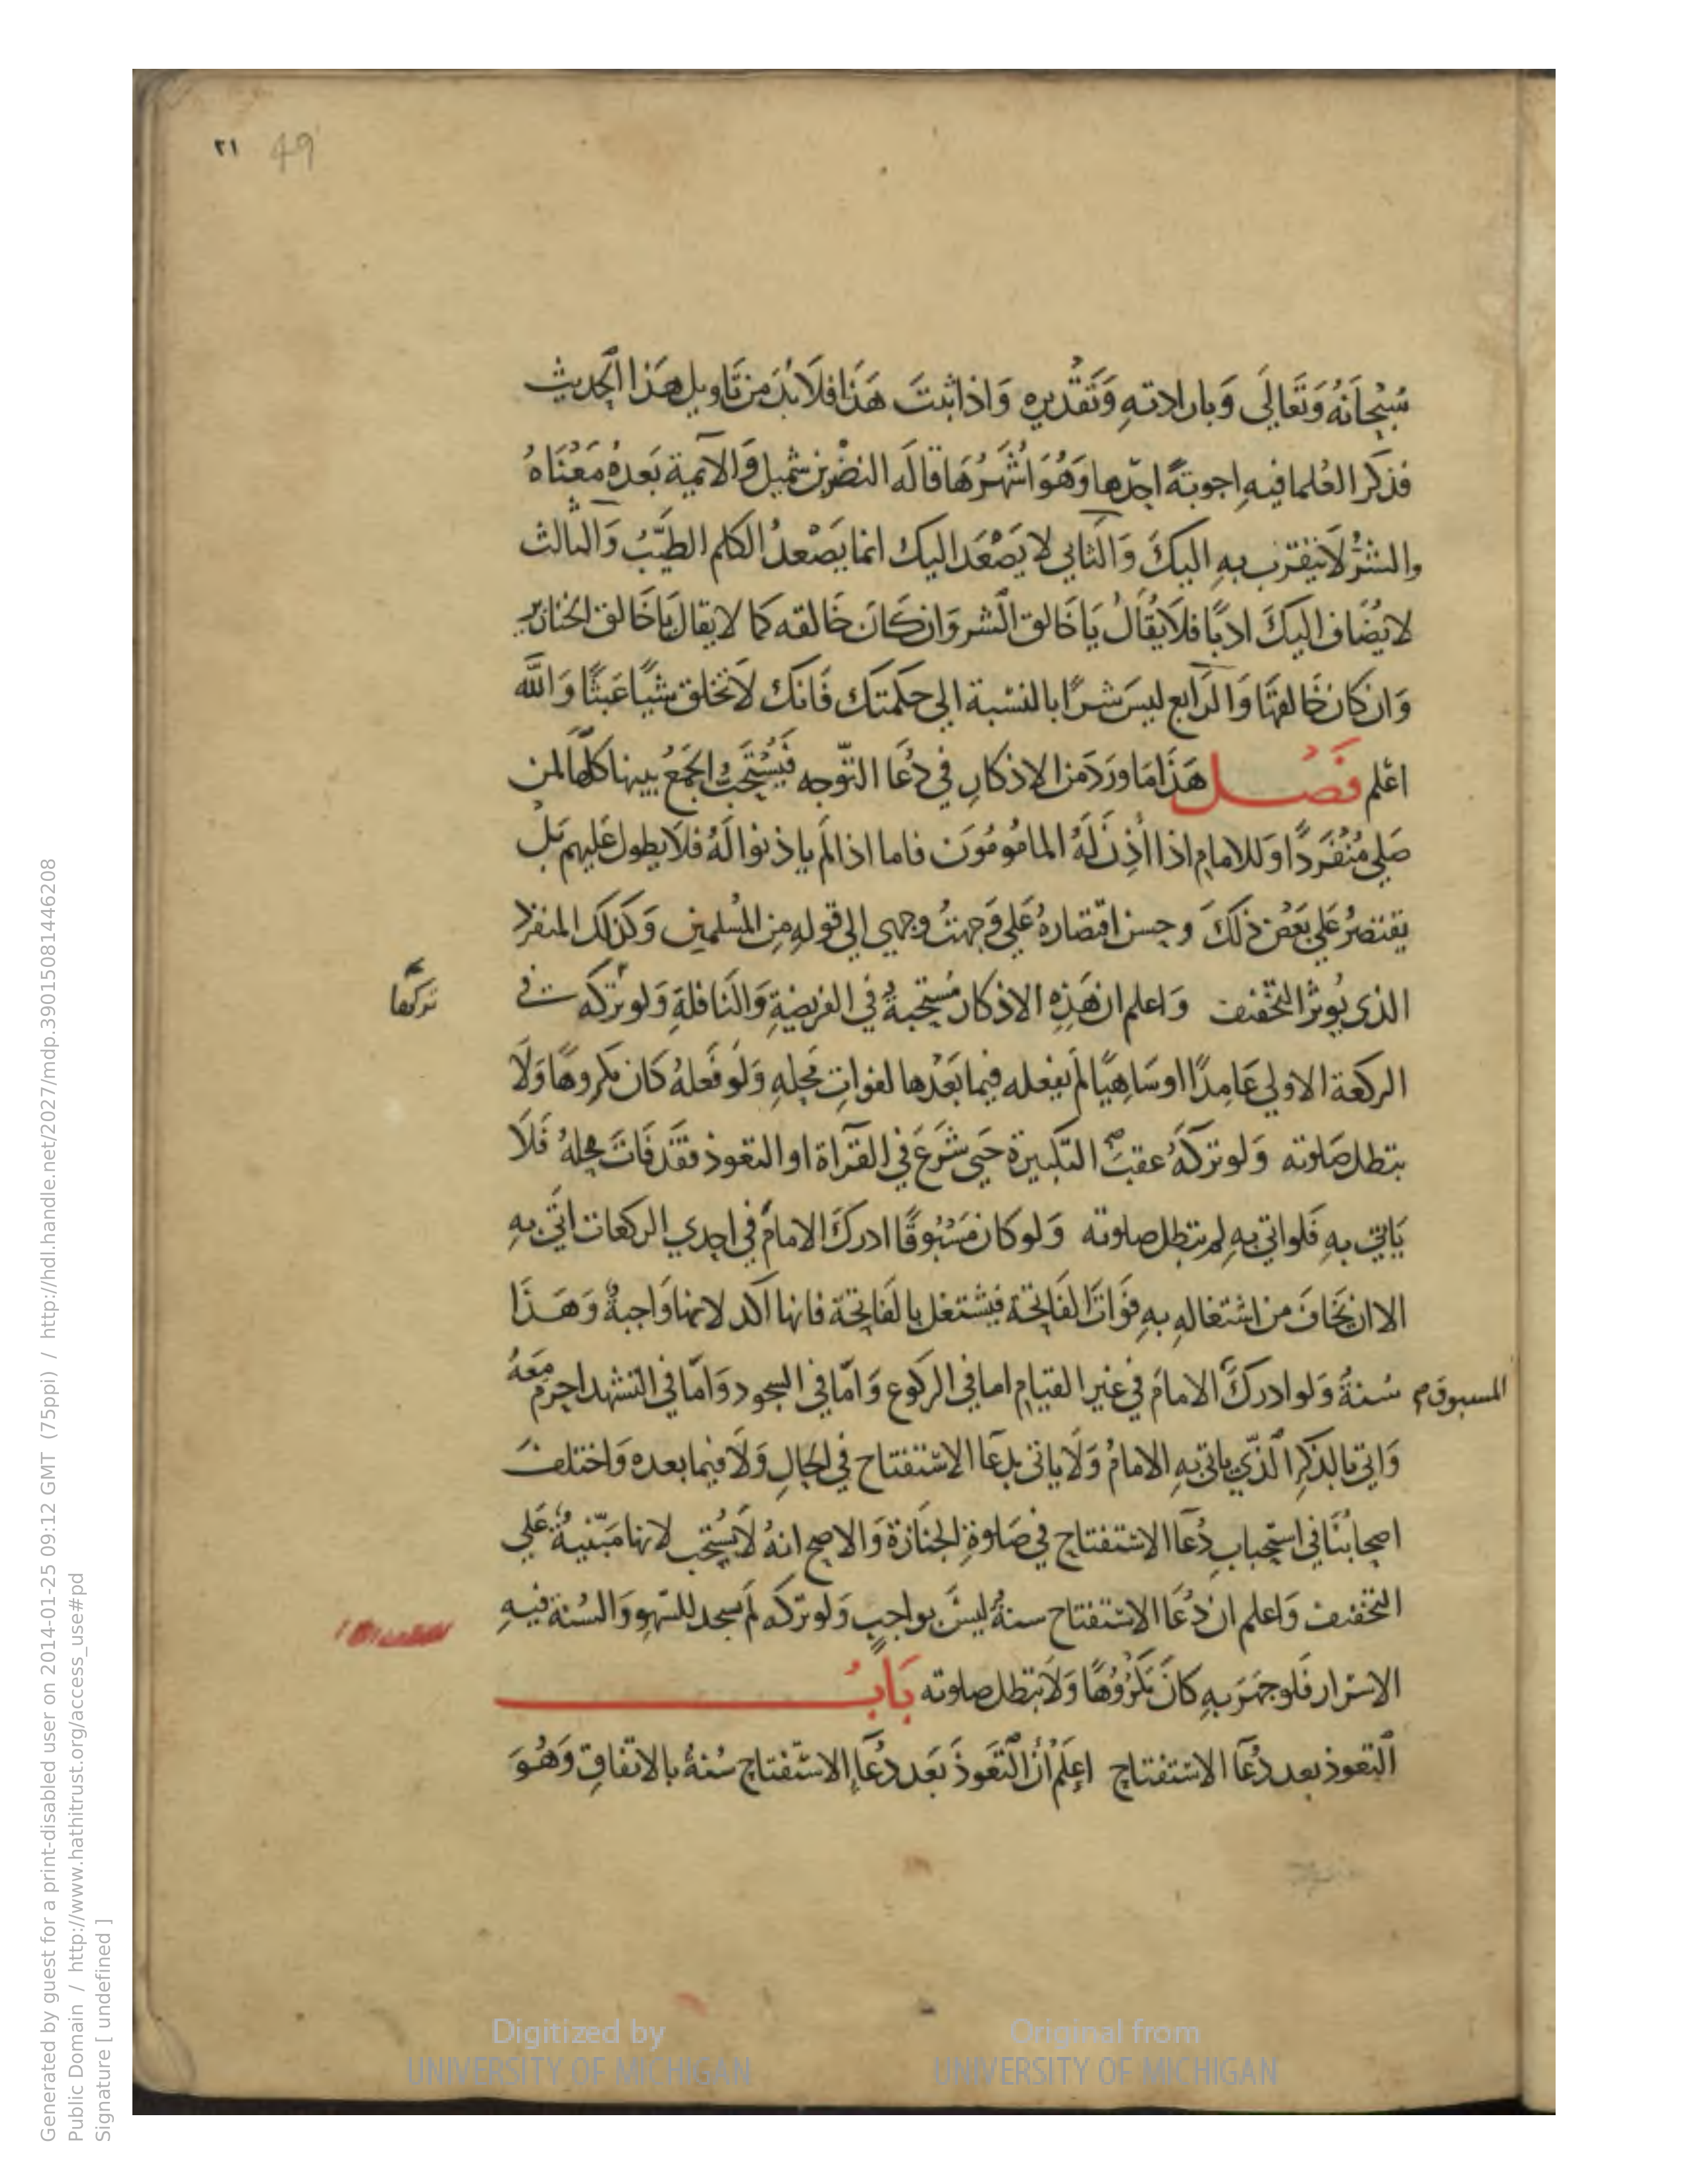 ٢١ 49
سُبْحَانَهُ وَتَعَالَى وَبارادتهِ وَتَقْدِيرِه وَاذا ثبتَ هَذَا فلَابُدَ مِن تَاويل هَذا الحَديث
فذكَر العُلما فيهِ اجوبتةً احدّها وَهُوَ اشْهَرُهَا قالَه النضْر بن شميل وَالآئمية بَعدهُ مَعْنَاهُ
والشرُّ لَا يتقرَب بهِ اليكَ وَالثَاني لا يَصْعَد اليك انما يَصْعدُ الكلم الطَيّبُ وَالثالث
لا يُضَاف اليكَ ادبًا فلَا يُقَالُ يَا خَالق الشر وَان كَانَ خَالقه كما لا يقال يَا خَالق الخنازير
وَان كَان خَالقهَا وَالرَابع ليسَ شرًا بالنسْبة الي حكمتكَ فَانكَ لَا تخلق شيًا عَبثًا وَاللَّه
اعْلم فَصْل هَذَا مَا ورَدَ مَن الاذكارِ في دُعَا التوّجه فَيُسْتَحَبُّ الجَمَعُ بينها كلّهَا لمن
صَلي مُنْفَردًا وَللامام اذا اَذِنَ لَهُ المامُومُونَ فاما اذا لَم ياذنوا لَهُ فلَا يطول عَليهم بَلْ
يقتصرُ عَلي بَعْض ذلكَ وحسن اقتصَارهُ عَلي وَجهتُ وجهي الي قولهِ مِن المُسلمين وَكذلكَ المنفرد
الذي يُوثر التخفيف وَاعلم ان هَذِهِ الاذكار مُسْتحبةٌ في الفريضةِ وَالنَافلةِ وَلو تركه في
تركها
الركعة الاولي عَامِدًا او سَاهِيًا لَم يفعله فيما بَعْدها لفواتِ محلهِ وَلو فَعلهُ كَان مكروهًا وَلَا
بتطل صَلوته وَلو تركهُ عقيبَ التكبيرة حَتي شَرَعَ في القرَاة او التعوذ فقَد فَاتَ محلهُ فَلَا
يَاتي بهِ فَلو اتي بهِ لم بتطل صلوته وَلو كان مَسْبُوقًا ادركَ الامامَ في احدي الركعات اتَي بهِ
الا ان يخافَ من اشتغالهِ بهِ فوَاتَ الفَاتحَة فيشتغل بالفَاتحَة فانها اكد لانها وَاجبةٌ وَهَذَا
سُنةٌ وَلو ادركَ الامامَ في غير القيَام اما في الركوع وَامّا في السجود وَامّا في التشهد احرمَ مَعَهُ
المسبوق
وَاتي بالذكرِ الذّي ياتي بهِ الامامُ وَلَا ياتي بدعَا الاسْتفتاح في الحَالِ وَلَا فيما بعده وَاختلفَ
اصحابُنَا في استحبابِ دُعَا الاستفتاح في صَلوة الجنَازة وَالاصح انهُ لَا يُسْتحب لانها مَبْنيةٌ عَلي
التخفيف وَاعلم ان دُعَا الاستفتاح سنةٌ ليسَ بواجبٍ وَلو تركه لَم يسجد للسّهو وَالسُنة فيهِ
الاسْرار فَلو جهَرَ بهِ كانَ مَكرُوهًا وَلَا بتطل صلوته بَابُ
التعوذ بعد دُعَا الاسْتفتاح اعلَمْ أنَّ التَعَوذَ بَعَد دعَا الاسْتفتاح سُنةٌ بالاتفاق وَهُوَ
Digitized by
UNIVERSITY OF MICHIGAN
Original from
UNIVERSITY OF MICHIGAN
Generated by guest for a print-disabled user on 2014-01-25 09:12 GMT (75ppi) / http://hdl.handle.net/2027/mdp.39015081446208
Public Domain / http://www.hathitrust.org/access_use#pd
Signature [ undefined ]